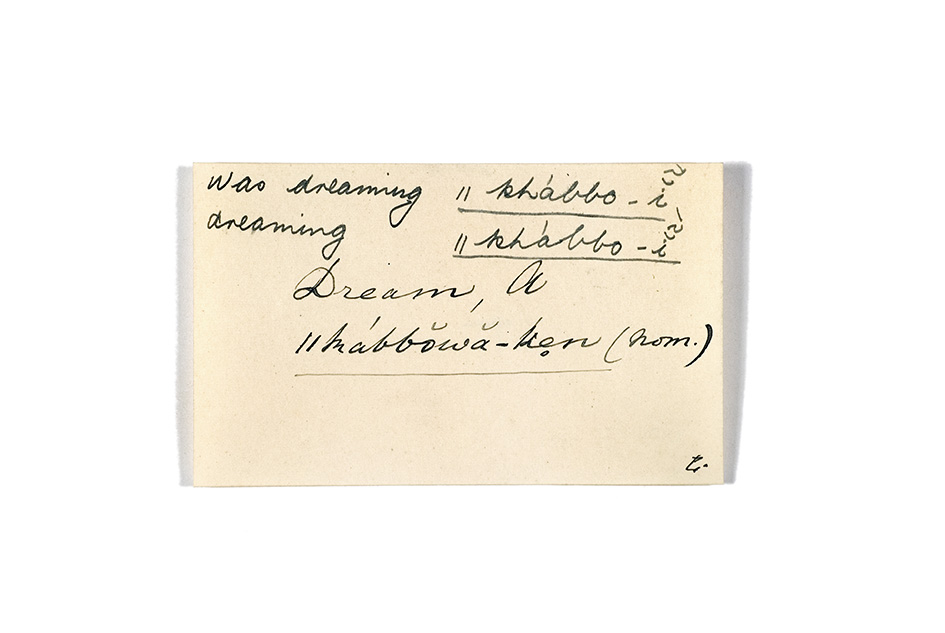 was dreaming || khábbo-i
dreaming || khábbo-i
Dream, A
||kábbŏwă-kẹn (nom.)
t.